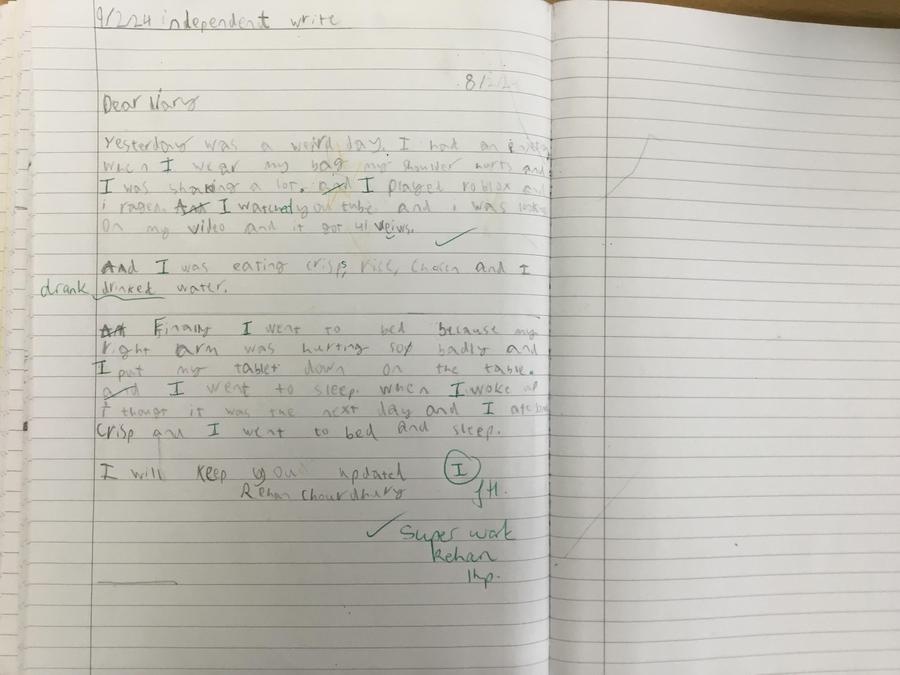 9/2/24 independent write
8/2/2
Dear Mary
Yesterday was a weird day. I had an
when I wear my bag my shoulder hurts and
I was shaking a lot. and I played roblox and
i ragen. And I watched you tube and i was
On my video and it got 41 veiws.
And I was eating crisps, rice, and I
drank drinked water.
Finally I went to bed because my
right arm was hurting so badly and
I put my tablet down on the table.
and I went to sleep. when I woke up
I thougt it was the next day and I ate
crisp and I went to bed and sleep.
I will keep you updated I
Rehan Choudhury
Super work
Rehan
1hp.